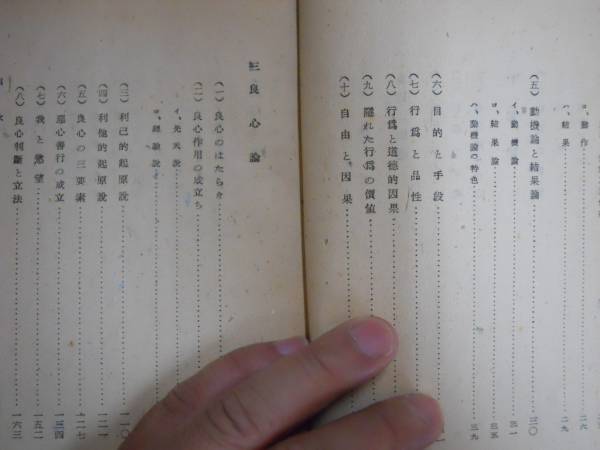 ロ、動作………二六
ハ、結果………二九
（五）動機論と結果論………三〇
イ、動機論………三一
ロ、結果論………三五
ハ、動機論の特色………三九
（六）目的と手段………
（七）行爲と品性………
（八）行爲と道德的因果………
（九）隱れた行爲の價値………
（十）自由と因果………
三 良心論
（一）良心のはたらき………
（二）良心作用の成立ち………
イ、先天説………
ロ、經驗説………
（三）利己的起原説………一一〇
（四）利他的起原説………一二一
（五）良心の三要素………一二七
（六）惡心善行の成立………一三四
（七）我と慾望………一五二
（八）良心判斷と立法………一六三